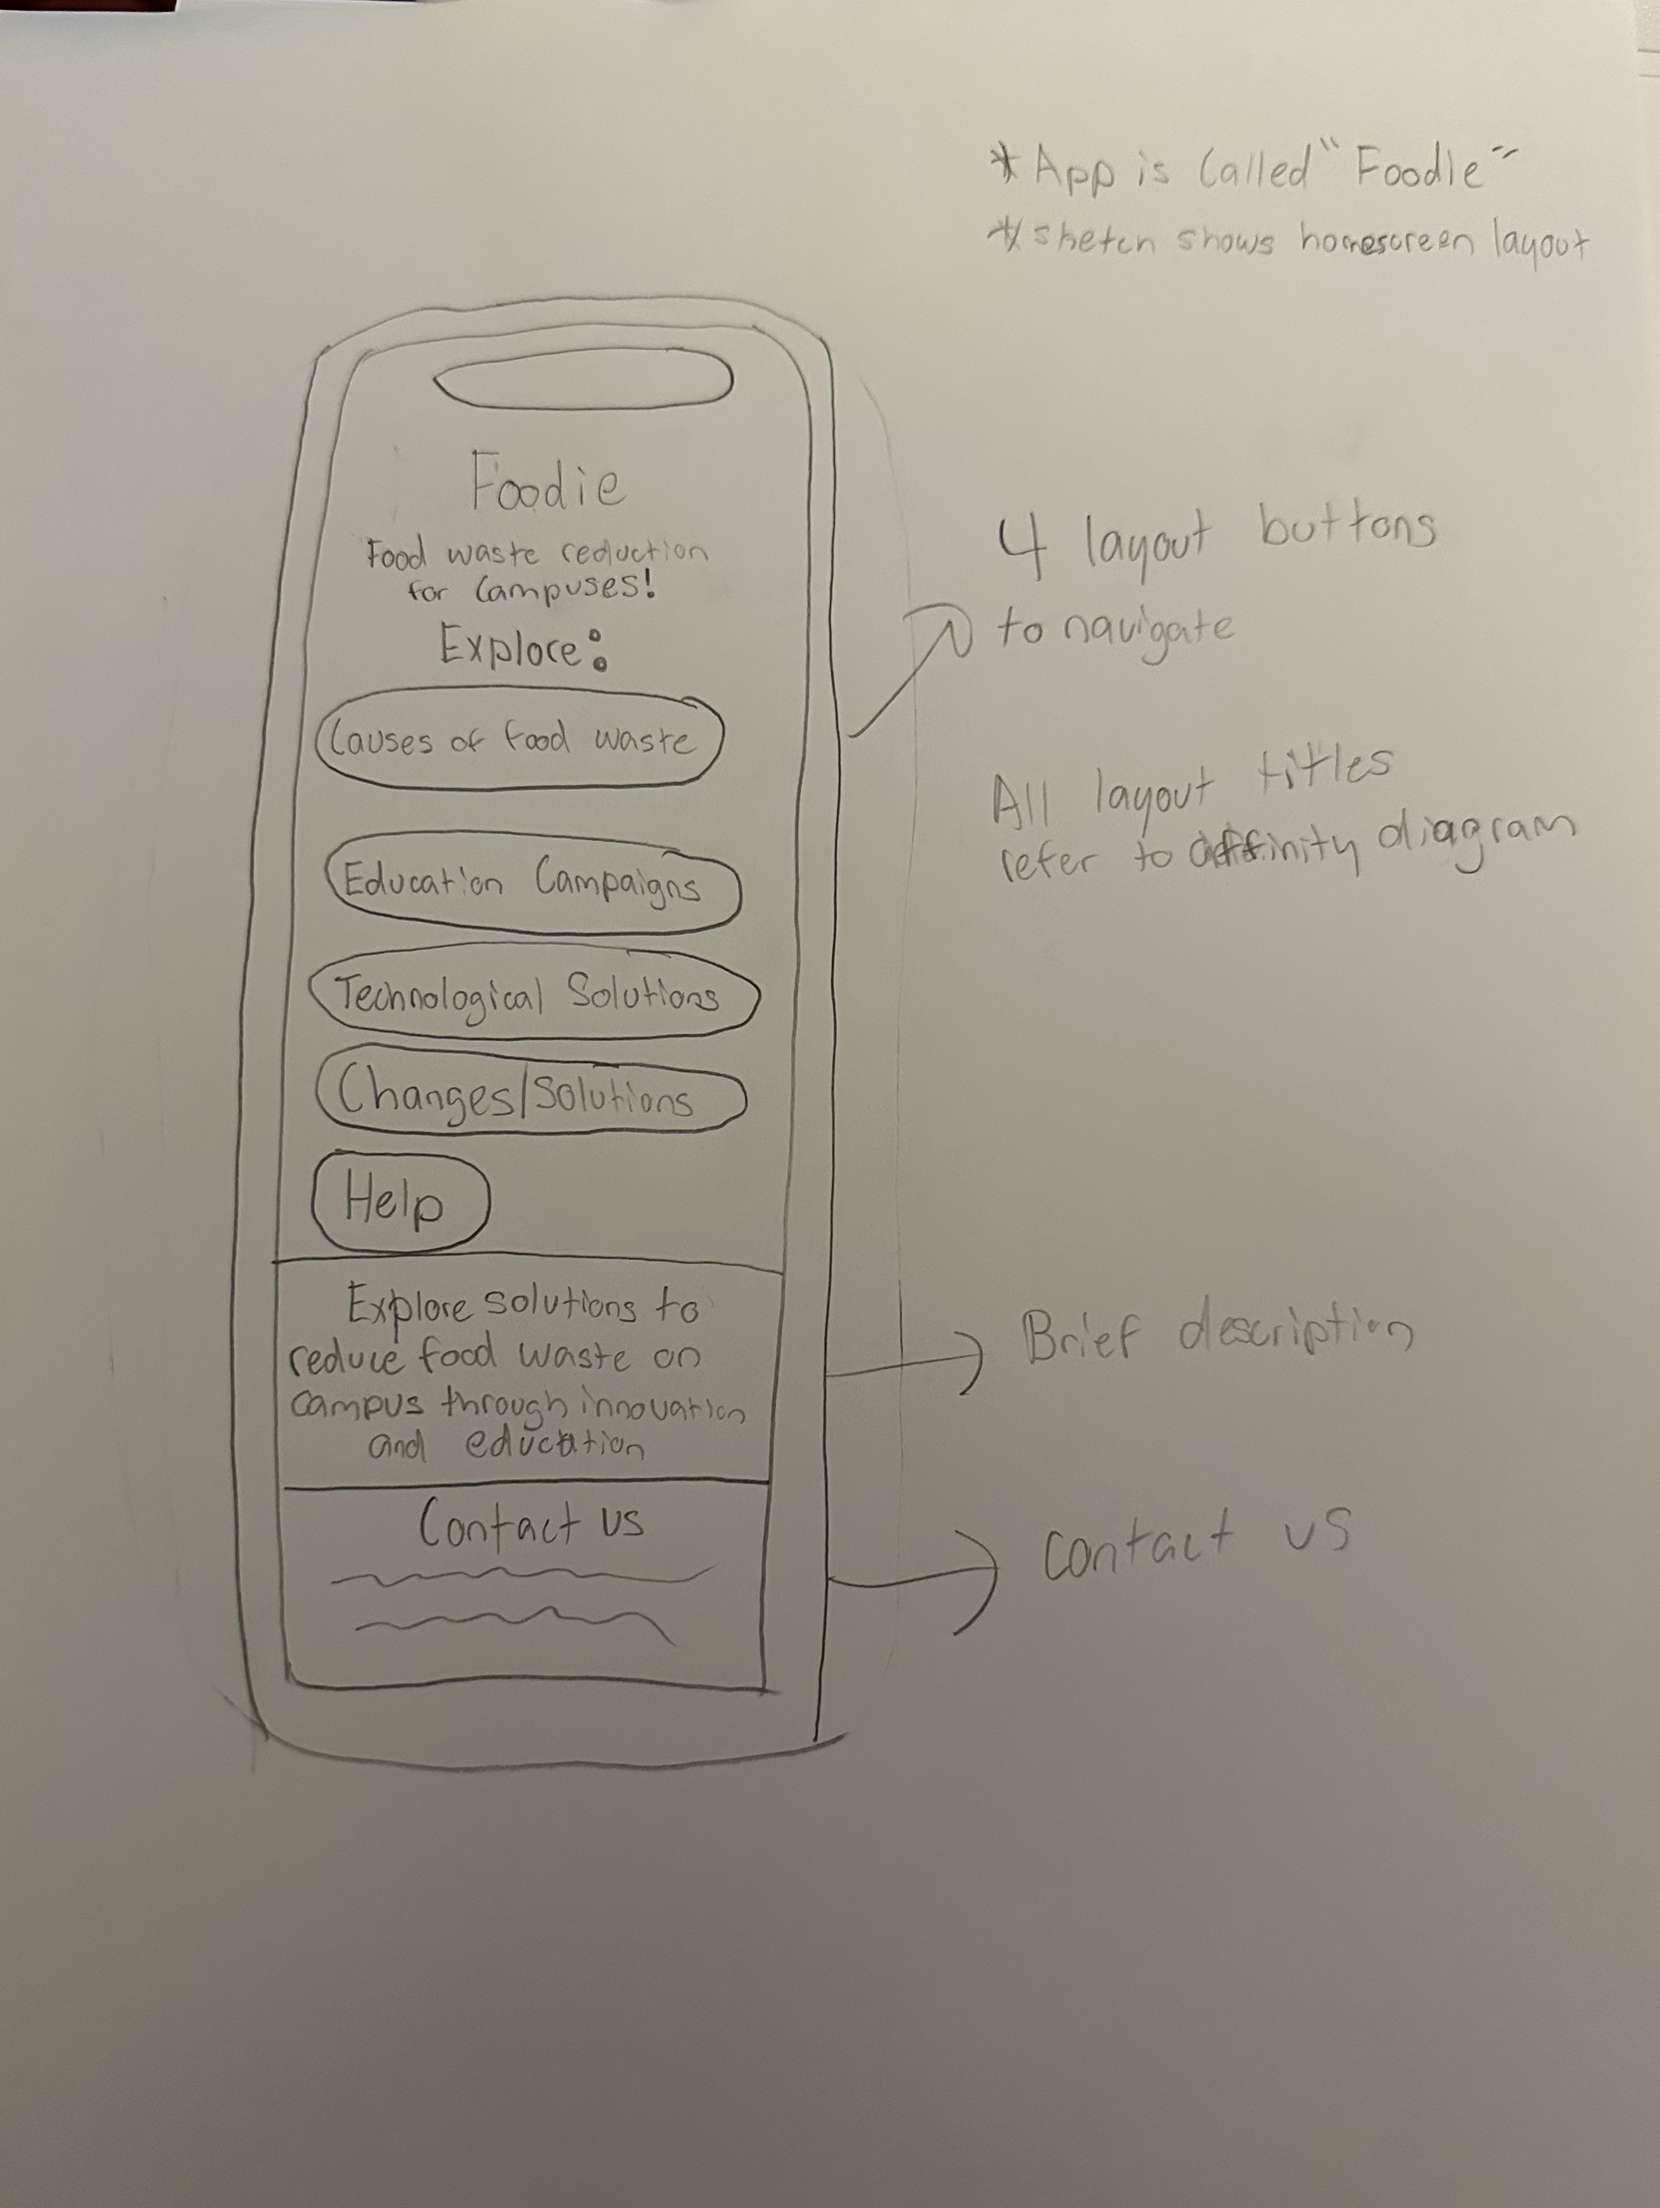 *App is called "Foodie"
*sketch shows homescreen layout
Foodie
Food waste reduction
for campuses!
Explore:
Causes of food waste
Education Campaigns
Technological Solutions
Changes/Solutions
Help
Explore solutions to
reduce food waste on
campus through innovation
and education
Contact us
4 layout buttons
to navigate
All layout titles
refer to affinity diagram
Brief description
contact us